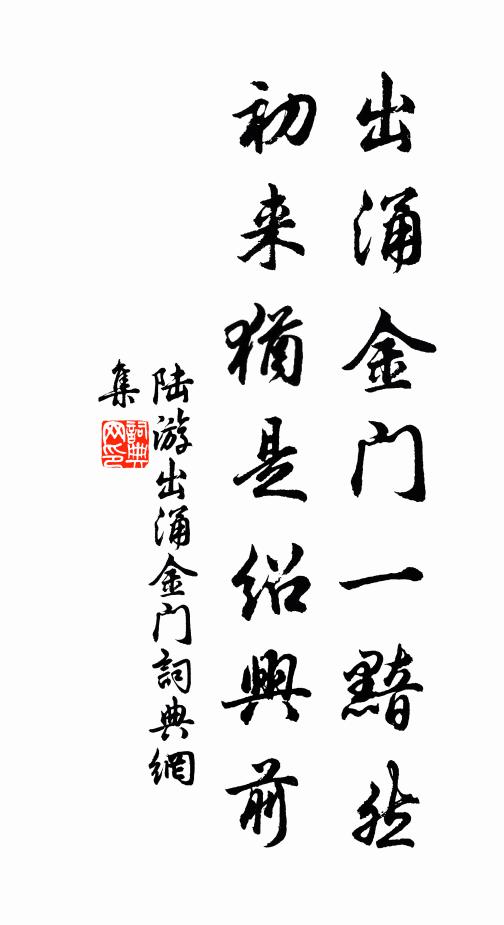 出涌金门一黯然
初来犹是绍興前
陆游出涌金门詞典網
集
詞典网印